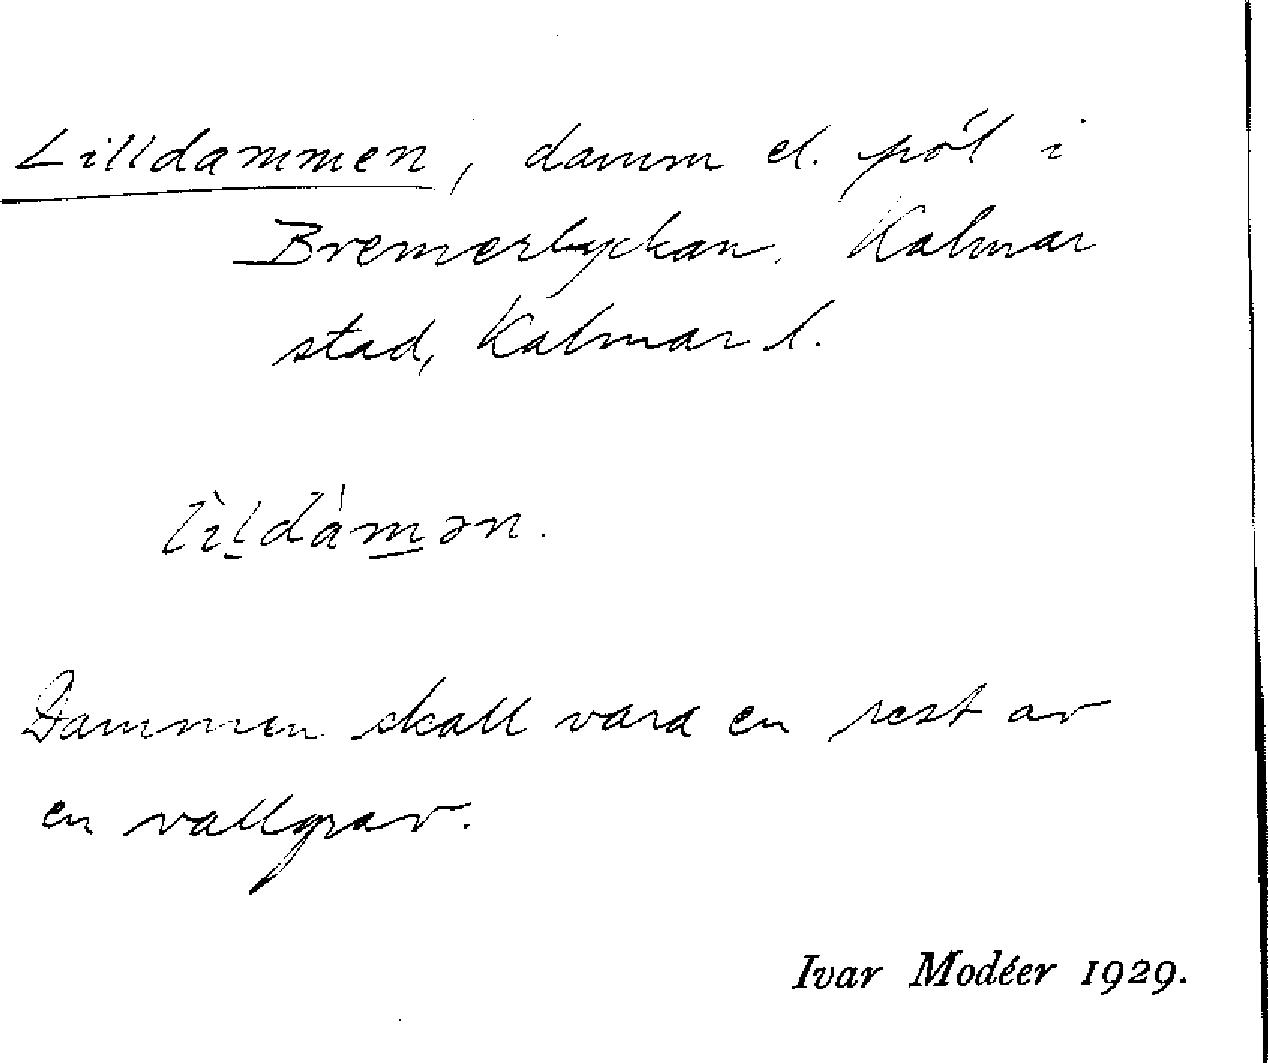 Lilldammen, damm el. pöl i
Bremerlyckan. Kalmar
stad, Kalmar l.
lìl̲dám̲ən.
Dammen skall vara en rest av
en vallgrav.
Ivar Modéer 1929.